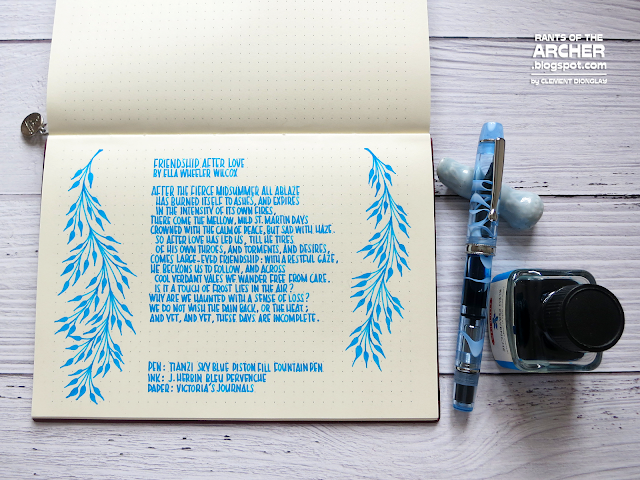 RANTS OF THE
ARCHER
.blogspot.com
by CLEMENT DIONGLAY
FRIENDSHIP AFTER LOVE
BY ELLA WHEELER WILCOX
AFTER THE FIERCE MIDSUMMER ALL ABLAZE
HAS BURNED ITSELF TO ASHES, AND EXPIRES
IN THE INTENSITY OF ITS OWN FIRES,
THERE COME THE MELLOW, MILD ST. MARTIN DAYS
CROWNED WITH THE CALM OF PEACE, BUT SAD WITH HAZE.
SO AFTER LOVE HAS LED US, TILL HE TIRES
OF HIS OWN THROES, AND TORMENTS, AND DESIRES,
COMES LARGE-EYED FRIENDSHIP: WITH A RESTFUL GAZE,
HE BECKONS US TO FOLLOW, AND ACROSS
COOL VERDANT VALES WE WANDER FREE FROM CARE.
IS IT A TOUCH OF FROST LIES IN THE AIR?
WHY ARE WE HAUNTED WITH A SENSE OF LOSS?
WE DO NOT WISH THE PAIN BACK, OR THE HEAT;
AND YET, AND YET, THESE DAYS ARE INCOMPLETE.
PEN: TIANZI SKY BLUE PISTON FILL FOUNTAIN PEN
INK: J. HERBIN BLEU PERVENCHE
PAPER: VICTORIA'S JOURNALS